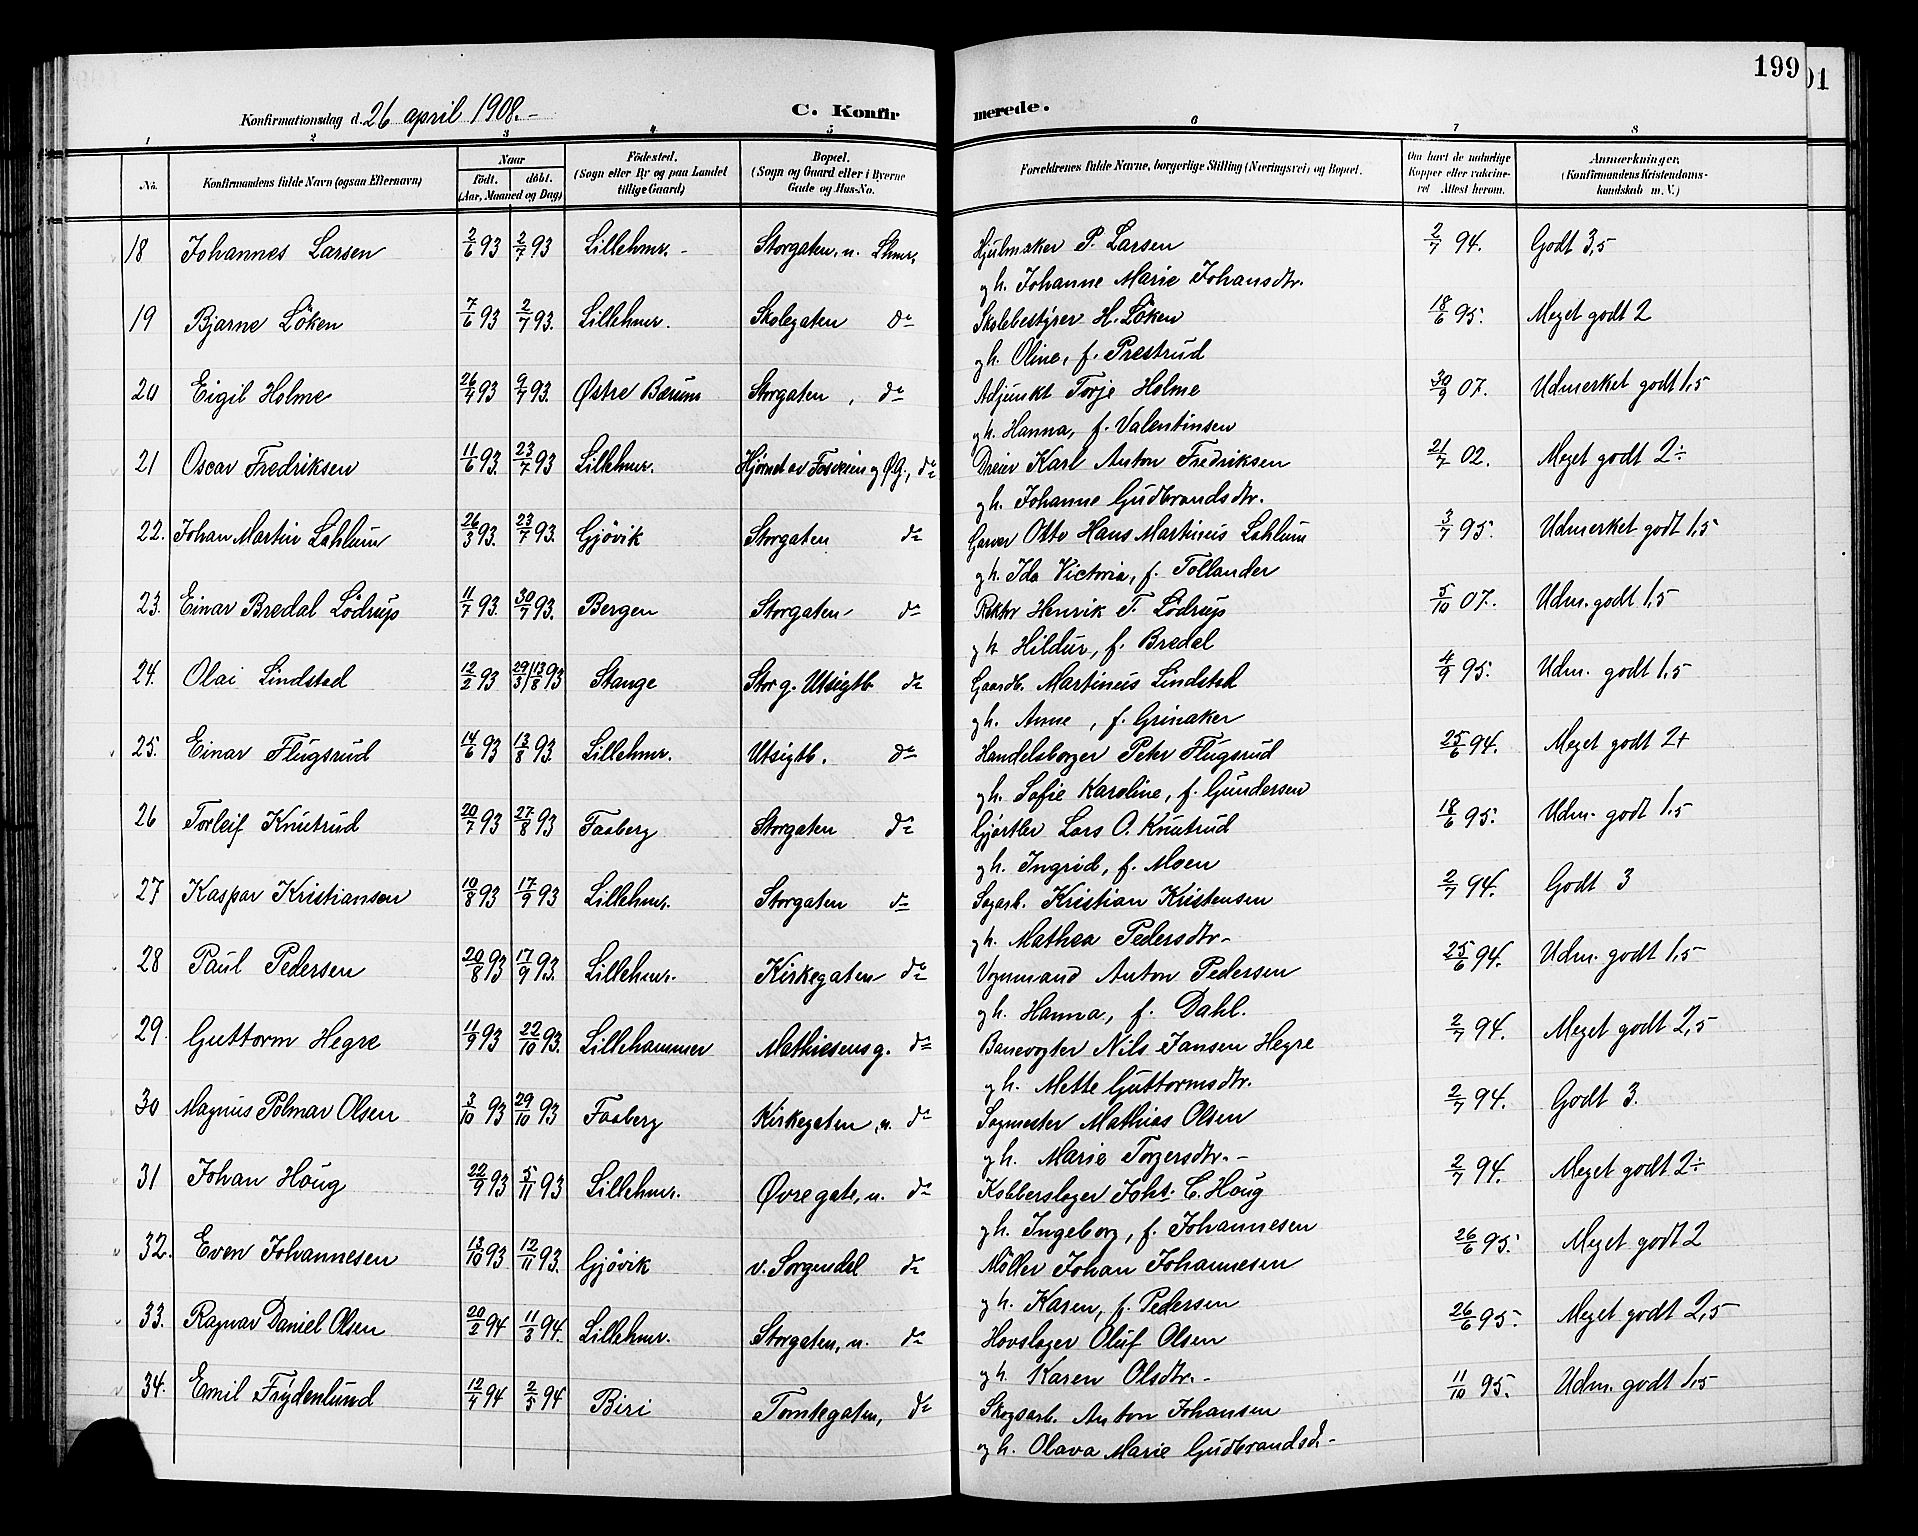 199
01
Konfirmationsdag d. 26 april 1908.-
C. Konfir merede.
1 2 3 4 5 6 7 8
No.
Konfirmandens fulde Navn (ogsaa Efternavn)
Naar
födt. döbt.
(Aar, Maaned og Dag)
Födested.
(Sogn eller By og paa Landet
tillige Gaard)
Bopæl.
(Sogn og Gaard eller i Byerne
Gade og Hus-No.
Forældrenes fulde Navne, borgerlige Stilling (Næringsvei) og Bopæl.
Om havt de naturlige
Kopper eller vakcine-
ret Attest herom.
Anmærkninger.
(Konfirmandens Kristendoms-
kundskab m. V.)
18 Johannes Larsen 2/6 93 2/7 93 Lillehmr. - Storgaten, n. Lhmr. Hjulmaker P. Larsen 2/7 94. Godt 3,5
gh. Johanne Marie Johansdtr.
19 Bjarne Löken 7/6 93 2/7 93. Lillehmr. Skolegaten do Skolebestyrer H. Löken 18/6 95. Meget godt 2
gh. Oline, f. Prestrud
20 Eigil Holme 26/4 93 9/7 93. Østre Bærum Storgaten, do Adjunkt Torje Holme 30/9 07. Udmerket godt 1,5
gh. Hanna, f. Valentinsen
21 Oscar Fredriksen 11/6 93. 23/7 93 Lillehmr. Hjørnet av Fosveien og ØG., do Dreier Karl Anton Fredriksen 21/7 02. Meget godt 2÷
gh. Johanne Gudbrandsdtr.
22. Johan Martin Lahlum 26/3 93. 23/7 93. Gjövik Storgaten do Garver Otto Hans Martinus Lahlum 3/7 95. Udmerket godt 1,5
gh. Ida Victoria, f. Tollander
23. Einar Bredal Lödrup 11/7 93. 30/7 93. Bergen Storgaten- do Rektor Henrik T. Lödrup 5/10 07. Udm. godt 1,5
gh Hildur, f. Bredal
24. Olai Lindstad 12/2 93 29/3 | 13/8 93 Stange Storg. Utsigtb. do Gaardb. Martinus Lindstad 4/9 95. Udm. godt 1,5
gh. Anne, f. Grinaker
25. Einar Flugsrud 14/6 93 13/8 93. Lillehmr. Utsigtb. do Handelsborger Peter Flugsrud 25/6 94. Meget godt 2+
gh. Sofie Karoline, f. Gundersen
26 Torleif Knutrud 20/7 93 27/8 93 Faaberg Storgaten do Gjørtler Lars O. Knutrud 18/6 95. Udm. godt 1,5
gh. Ingrid, f. Moen
27 Kaspar Kristiansen 10/8 93 17/9 93 Lillehmr. Storgaten do Sagarb. Kristian Kristensen 2/7 94. Godt 3
gh. Mathea Pedersdtr-
28 Paul Pedersen 20/8 93 17/9 93. Lillehmr. Kirkegaten do Vognmand Anton Pedersen 25/6 94. Udm. godt 1,5
gh. Hanna, f. Dahl.
29. Guttorm Hegre 11/9 93 22/10 93. Lillehammer Mathiesensg. do Banevogter Nils Jansen Hegre 2/7 94. Meget godt 2,5
gh. Mette Guttormsdtr.
30 Magnus Polmar Olsen 3/10 93 29/10 93 Faaberg Kirkegaten, n. do Sagmester Mathias Olsen 2/7 94. Godt 3.
gh. Marie Torgersdtr.-
31 Johan Houg 22/9 93 5/11 93 Lillehmr. Øvregate, n. do Kobberslager Johs. C. Houg 2/7 94. Meget godt 2÷
gh. Ingeborg, f. Johannesen
32. Even Johannesen 13/10 93 12/11 93. Gjövik v. Sorgendal do Möller Johan Johannesen 26/6 95. Meget godt 2
gh. Karen, f. Pedersen
33. Ragnar Daniel Olsen 20/2 94 11/3 94. Lillehmr. Storgaten, n. do Hovslager Oluf Olsen 26/6 95. Meget godt 2,5
gh. Karen Olsdtr.-
34. Emil Frydenlund 12/4 94 2/5 94 Biri Tomtegaten, do Skogsarb. Anton Johansen 11/10 95. Udm. godt 1,5
og h. Olava Marie Gudbrandsd.-